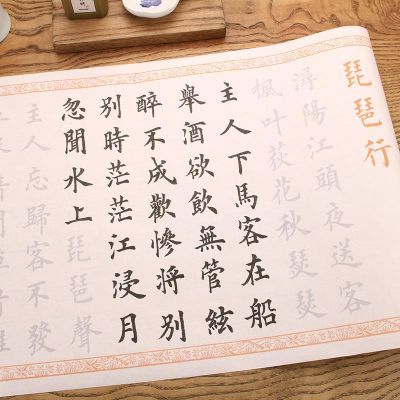 琵琶行
潯陽江頭夜送客
楓叶荻花秋瑟瑟
主人下馬客在船
舉酒欲飲無管絃
醉不成歡慘將別
別時茫茫江浸月
忽聞水上琵琶聲
主人忘歸客不發